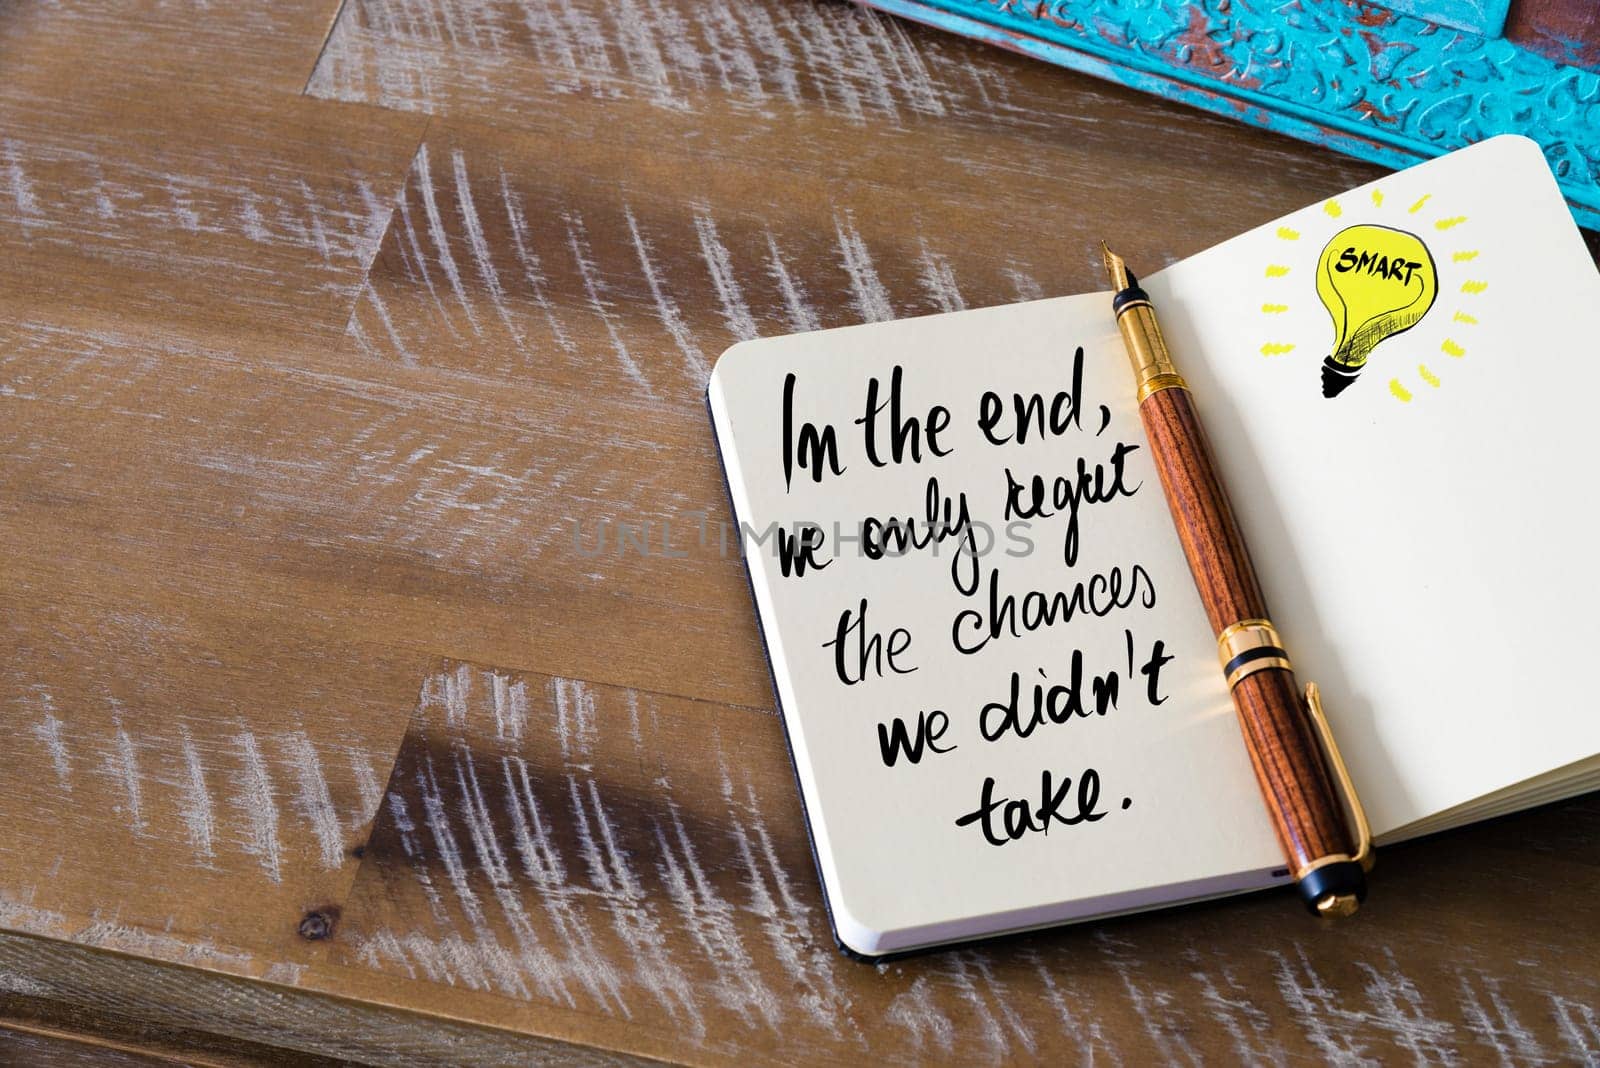 In the end,
we only regret
the chances
we didn't
take.
SMART
UNLIMPHOTOS